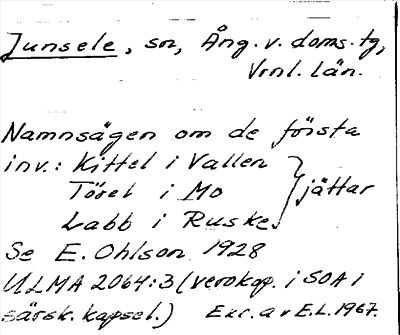 Junsele, sn, Ång. v. doms. tg,
Vrnl. län.
Namnsägen om de första
inv.: Kittel i Vallen
Törel i Mo } jättar
Labb i Ruske.
Se E. Ohlson 1928
ULMA 2064:3 (verokop. i SOA i
särsk. kapsel.) Exc. av E.L. 1967.